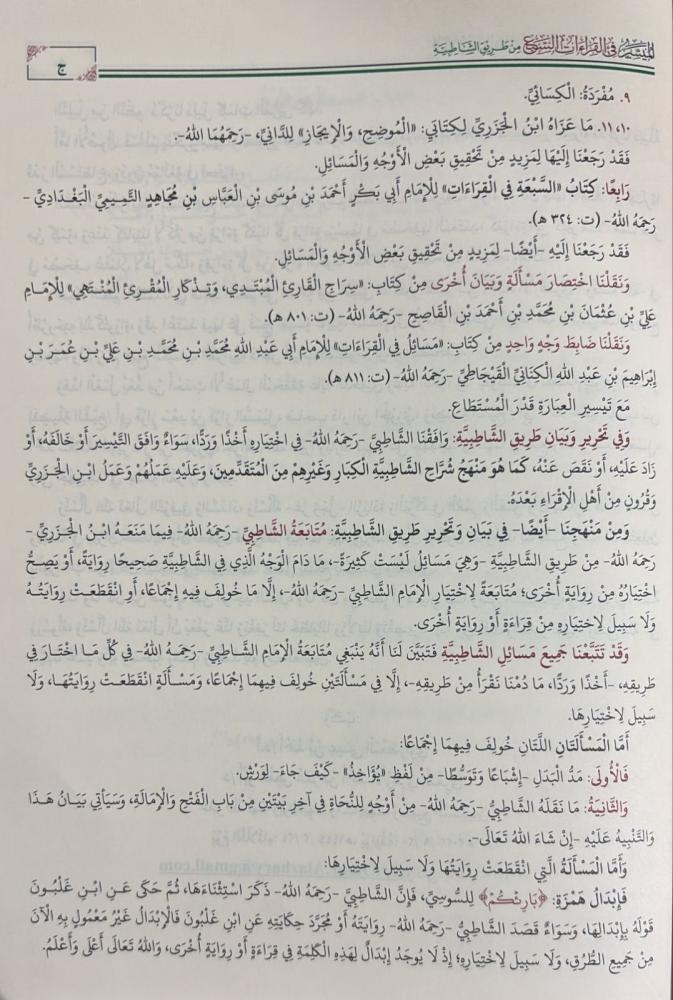 الميسر في القراءات السبع من طريق الشاطبية
ج
٩. مُفْرَدَةُ: الْكِسَائِيِّ.
١٠، ١١. مَا عَزَاهُ ابْنُ الْجَزَرِيِّ لِكِتَابَيِ: «الْمُوضِحِ، وَالْإِيجَازِ» لِلدَّانِيِّ، -رَحِمَهُمَا اللهُ-.
فَقَدْ رَجَعْنَا إِلَيْهَا لِمَزِيدٍ مِنْ تَحْقِيقِ بَعْضِ الْأَوْجُهِ وَالْمَسَائِلِ.
رَابِعًا: كِتَابُ «السَّبْعَةِ فِي الْقِرَاءَاتِ» لِلْإِمَامِ أَبِي بَكْرٍ أَحْمَدَ بْنِ مُوسَى بْنِ الْعَبَّاسِ بْنِ مُجَاهِدٍ التَّمِيمِيِّ الْبَغْدَادِيِّ -
رَحِمَهُ اللهُ- (ت: ٣٢٤ هـ).
فَقَدْ رَجَعْنَا إِلَيْهِ -أَيْضًا- لِمَزِيدٍ مِنْ تَحْقِيقِ بَعْضِ الْأَوْجُهِ وَالْمَسَائِلِ.
وَنَقَلْنَا اخْتِصَارَ مَسْأَلَةٍ وَبَيَانَ أُخْرَى مِنْ كِتَابِ: «سِرَاجِ الْقَارِئِ الْمُبْتَدِي، وَتِذْكَارِ الْمُقْرِئِ الْمُنْتَهِي» لِلْإِمَامِ
عَلِيِّ بْنِ عُثْمَانَ بْنِ مُحَمَّدِ بْنِ أَحْمَدَ بْنِ الْقَاصِحِ -رَحِمَهُ اللهُ- (ت: ٨٠١ هـ).
وَنَقَلْنَا ضَابِطَ وَجْهٍ وَاحِدٍ مِنْ كِتَابِ: «مَسَائِلُ فِي الْقِرَاءَاتِ» لِلْإِمَامِ أَبِي عَبْدِ اللهِ مُحَمَّدِ بْنِ مُحَمَّدِ بْنِ عَلِيِّ بْنِ عُمَرَ بْنِ
إِبْرَاهِيمَ بْنِ عَبْدِ اللهِ الْكِنَانِيِّ الْقَيْجَاطِيِّ -رَحِمَهُ اللهُ- (ت: ٨١١ هـ).
مَعَ تَيْسِيرِ الْعِبَارَةِ قَدْرَ الْمُسْتَطَاعِ.
وَفِي تَحْرِيرِ وَبَيَانِ طَرِيقِ الشَّاطِبِيَّةِ: وَافَقْنَا الشَّاطِبِيَّ -رَحِمَهُ اللهُ- فِي اخْتِيَارِهِ أَخْذًا وَرَدًّا، سَوَاءٌ وَافَقَ التَّيْسِيرَ أَوْ خَالَفَهُ، أَوْ
زَادَ عَلَيْهِ، أَوْ نَقَصَ عَنْهُ، كَمَا هُوَ مَنْهَجُ شُرَّاحِ الشَّاطِبِيَّةِ الْكِبَارِ وَغَيْرِهِمْ مِنَ الْمُتَقَدِّمِينَ، وَعَلَيْهِ عَمَلُهُمْ وَعَمَلُ ابْنِ الْجَزَرِيِّ
وَقُرُونٍ مِنْ أَهْلِ الْإِقْرَاءِ بَعْدَهُ.
وَمِنْ مَنْهَجِنَا -أَيْضًا- فِي بَيَانِ وَتَحْرِيرِ طَرِيقِ الشَّاطِبِيَّةِ: مُتَابَعَةُ الشَّاطِبِيِّ -رَحِمَهُ اللهُ- فِيمَا مَنَعَهُ ابْنُ الْجَزَرِيِّ -
رَحِمَهُ اللهُ- مِنْ طَرِيقِ الشَّاطِبِيَّةِ -وَهِيَ مَسَائِلُ لَيْسَتْ كَثِيرَةً-، مَا دَامَ الْوَجْهُ الَّذِي فِي الشَّاطِبِيَّةِ صَحِيحًا رِوَايَةً، أَوْ يَصِحُّ
اخْتِيَارُهُ مِنْ رِوَايَةٍ أُخْرَى؛ مُتَابَعَةً لِاخْتِيَارِ الْإِمَامِ الشَّاطِبِيِّ -رَحِمَهُ اللهُ-، إِلَّا مَا خُولِفَ فِيهِ إِجْمَاعًا، أَوِ انْقَطَعَتْ رِوَايَتُهُ
وَلَا سَبِيلَ لِاخْتِيَارِهِ مِنْ قِرَاءَةٍ أَوْ رِوَايَةٍ أُخْرَى.
وَقَدْ تَتَبَّعْنَا جَمِيعَ مَسَائِلِ الشَّاطِبِيَّةِ فَتَبَيَّنَ لَنَا أَنَّهُ يَنْبَغِي مُتَابَعَةُ الْإِمَامِ الشَّاطِبِيِّ -رَحِمَهُ اللهُ- فِي كُلِّ مَا اخْتَارَ فِي
طَرِيقِهِ، -أَخْذًا وَرَدًّا، مَا دُمْنَا نَقْرَأُ مِنْ طَرِيقِهِ-، إِلَّا فِي مَسْأَلَتَيْنِ خُولِفَ فِيهِمَا إِجْمَاعًا، وَمَسْأَلَةٍ انْقَطَعَتْ رِوَايَتُهَا، وَلَا
سَبِيلَ لِاخْتِيَارِهَا.
أَمَّا الْمَسْأَلَتَانِ اللَّتَانِ خُولِفَ فِيهِمَا إِجْمَاعًا:
فَالْأُولَى: مَدُّ الْبَدَلِ -إِشْبَاعًا وَتَوَسُّطًا- مِنْ لَفْظِ «يُؤَاخِذُ» -كَيْفَ جَاءَ- لِوَرْشٍ.
وَالثَّانِيَةُ: مَا نَقَلَهُ الشَّاطِبِيُّ -رَحِمَهُ اللهُ- مِنْ أَوْجُهٍ لِلنُّحَاةِ فِي آخِرِ بَيْتَيْنِ مِنْ بَابِ الْفَتْحِ وَالْإِمَالَةِ، وَسَيَأْتِي بَيَانُ هَذَا
وَالتَّنْبِيهُ عَلَيْهِ -إِنْ شَاءَ اللهُ تَعَالَى-.
وَأَمَّا الْمَسْأَلَةُ الَّتِي انْقَطَعَتْ رِوَايَتُهَا وَلَا سَبِيلَ لِاخْتِيَارِهَا:
فَإِبْدَالُ هَمْزَةِ: ﴿بَارِئكُمْ﴾ لِلسُّوسِيِّ، فَإِنَّ الشَّاطِبِيَّ -رَحِمَهُ اللهُ- ذَكَرَ اسْتِثْنَاءَهَا، ثُمَّ حَكَى عَنِ ابْنِ غَلْبُونَ
قَوْلَهُ بِإِبْدَالِهَا، وَسَوَاءٌ قَصَدَ الشَّاطِبِيُّ -رَحِمَهُ اللهُ- رِوَايَتَهُ أَوْ مُجَرَّدَ حِكَايَتِهِ عَنِ ابْنِ غَلْبُونَ فَالْإِبْدَالُ غَيْرُ مَعْمُولٍ بِهِ الْآنَ
مِنْ جَمِيعِ الطُّرُقِ، وَلَا سَبِيلَ لِاخْتِيَارِهِ؛ إِذْ لَا يُوجَدُ إِبْدَالٌ لِهَذِهِ الْكَلِمَةِ فِي قِرَاءَةٍ أَوْ رِوَايَةٍ أُخْرَى، وَاللهُ تَعَالَى أَعْلَى وَأَعْلَمُ.